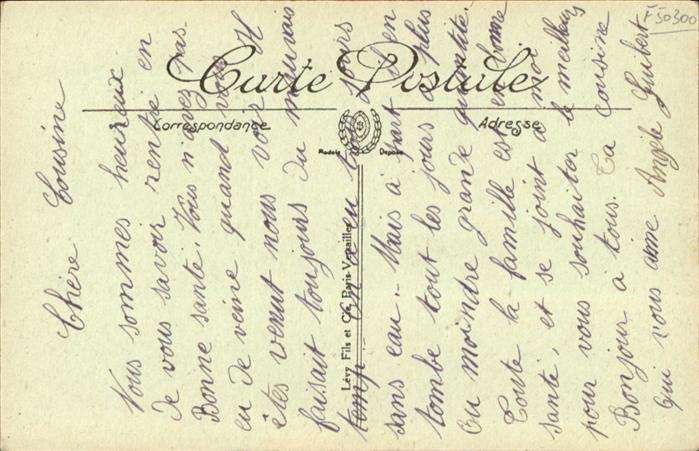 Carte Postale
Correspondance
Adresse
Modèle Déposé
Lévy Fils et Cie, Paris Versailles
F 50300
Chère Cousine
Nous sommes heureux
de vous savoir rentré en
Bonne santé. Vous n'avez pas
eu de veine quand vous
êtes venut nous voir Il
faisait toujours du mauvais
temp On a eu jours en
sans eau. Mais à part
tombe tout les jours à plus
ou moindre grande quantité.
Toute la famille est en bonne
santé, et se joint à moi
pour vous souhaiter le meilleurs
Bonjour a tous. Ta cousine
qui vous aime Angèle Guibert